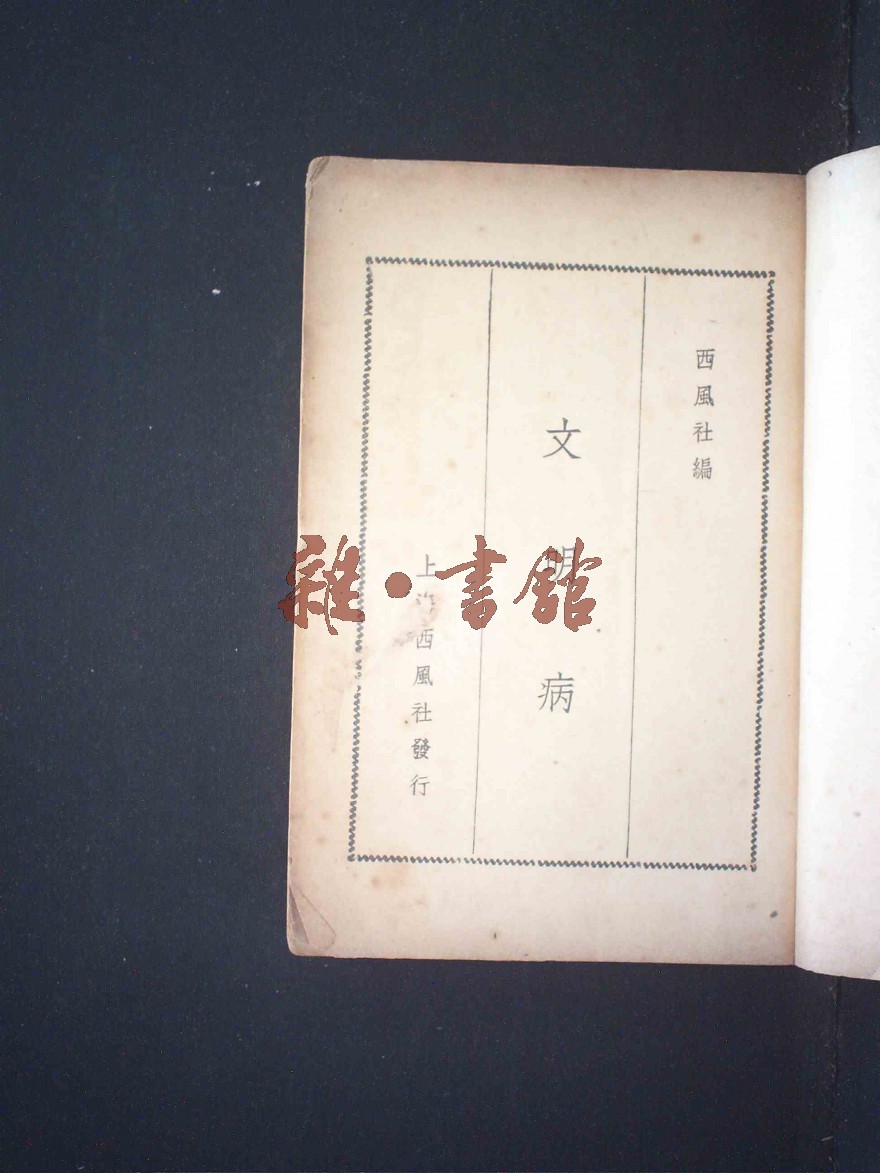 西風社編
文明病
上海西風社發行
雜·書館